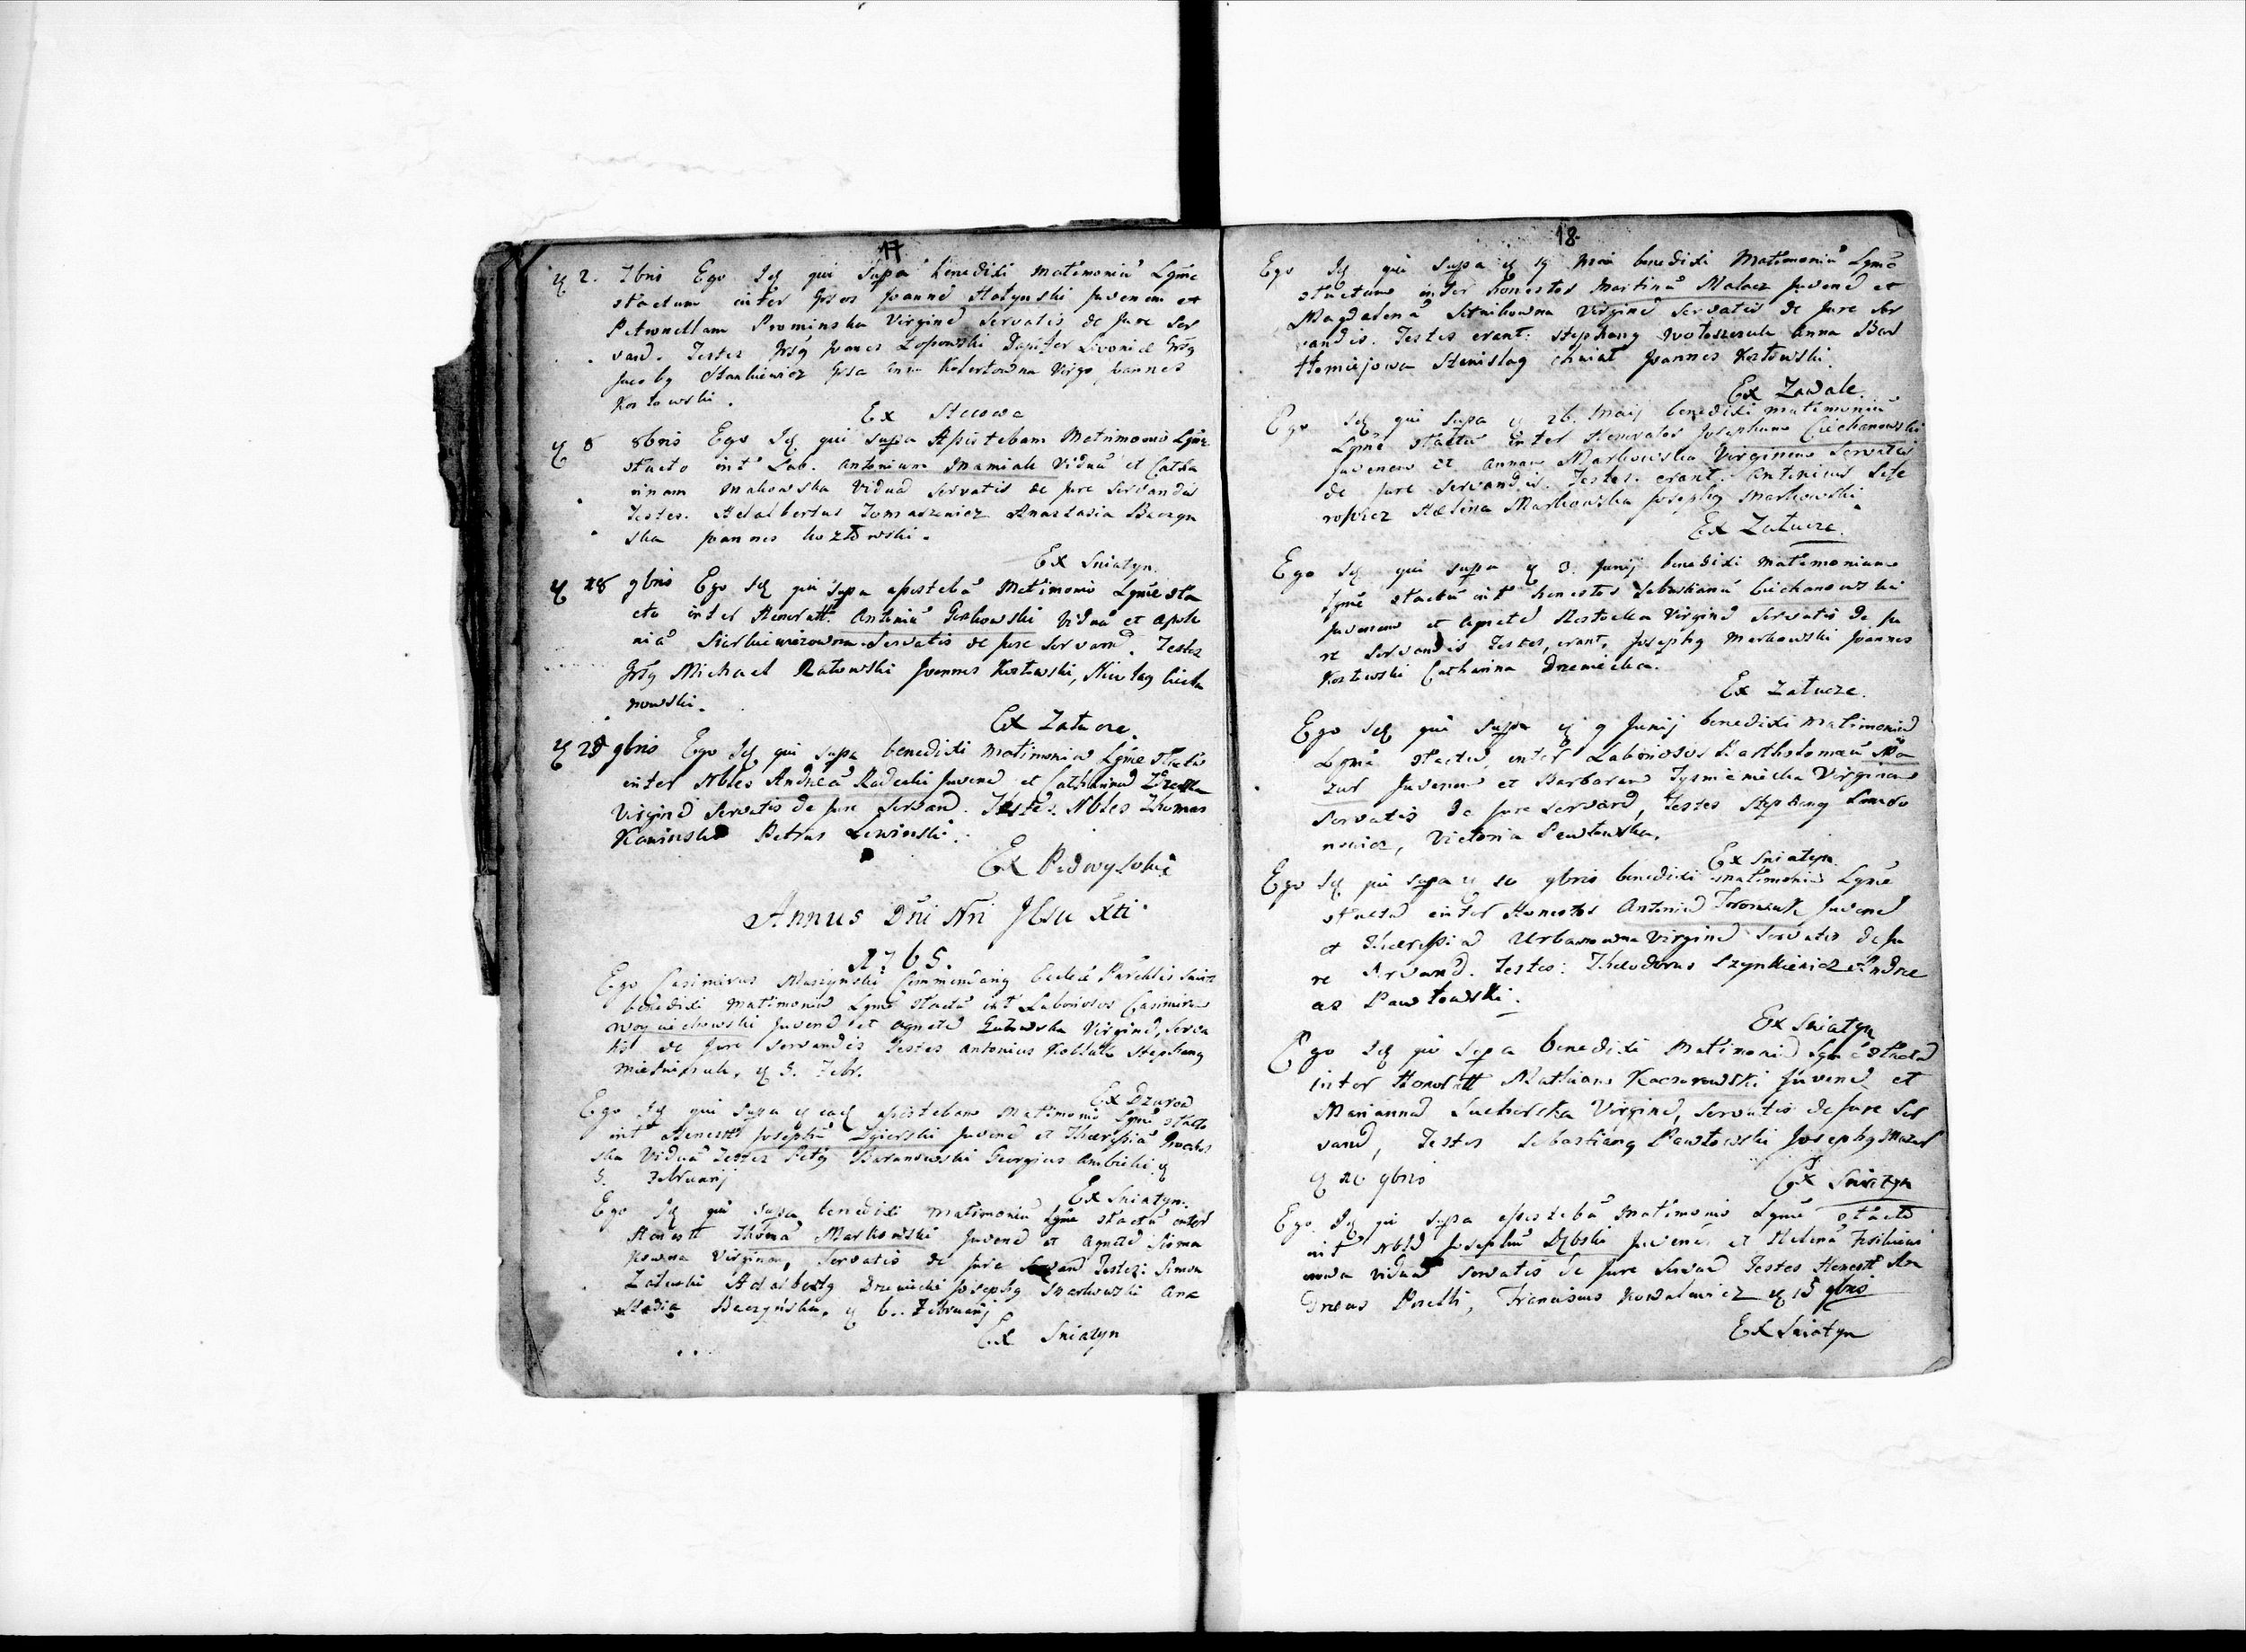 17
2. 7bris Ego Idem qui supa benedixi Matimoniũ Lgme
stactum inter Grsos Joannẽ Hatynski Juvenem et
Petronellam Prominska Virginẽ servatis de jure ser
vand. Testes Grsg Joanes Łopowski Dapifer Livoniæ Grsg
Jacobg Stankiewicz Grsa Anna Kobertowna Virgo Joannes
Kozłowski.
Ex Stecowa
8 8bris Ego Idem qui supa Apistebam Matrimonio Lgme
stacto int Lab. Antonium Mamiak Viduũ et Catha
rinam Makowska Viduã servatis de jure servandis
Testes. Adalbertus Tomaszewicz Anastasia Baczyn
ska Joannes Kozłowski.
Ex Sniatyn.
18 9bris Ego Idem qui supa apistebã Matimonio Lgme sta
cto inter Honoratt. Antoniũ Gurkowski Viduũ et Apolo
niã Sierkiewiczowna servatis de jure servand. Testes
Grsg Michael Ratowski Joannes Kozłowski, Nicolag Ciecha
nowski.
Ex Załucze.
28 9bris Ego Idem qui supa benedixi Matimoniũ Lgme stactũ
inter Nbles Andreã Radecki Juvenẽ et Catharinã
Virginẽ servatis de jure servand. Testes. Nbles Thomas
Kaminski Petrus Lewinski.
Ex Podwysokie
Annus Dni Nri Jesu Xti
1765.
Ego Casimirus Muszynski Commendarig Ecclæ Parchlis Sniat
benedixi Matimoniũ Lgme stactũ int Laboriosos Casimirum
Woyciechowski Juvenẽ et Agnetẽ Gutowska Virginẽ, serva
tis de jure servandis Testes Antonius Stephang
5. Febr.
Ex Dzurow
Ego Idem qui supa eadem apistebam Matimonio Lgme stacto
int Honestos Josephũ Zgierski Juvenẽ et Theressiã
ska Viduã Testes Petrg Baranowski Georgius Ambicki
5. Februarij
Ex Sniatyn.
Ego Idem qui supa benedixi Matimoniũ Lgme stactũ inter
Honestt Thomã Markowski Juvenẽ et Agnetẽ Sioma
kowna Virginem, servatis de jure servand Testes: Simon
Zaleski Adalbertg Drzewicki Josephg Markowski Ana
stasia Baczynska, 6. Februarij
Ex Sniatyn
18
Ego Idem qui supa 19 Maii benedixi Matimoniũ Lgme
stactum inter honestos Martinũ Malarz Juvenẽ et
Magdalenã Sitnikowna Virginẽ servatis de jure ser
vandis. Testes erant: Stephang Wołoszczuk Anna Bar
tłomiejowa Stanislag Chwiał Joannes Kozłowski.
Ex Zawale.
Ego Idem qui supa 26. Maij benedixi matimoniũ
Lgme stactũ inter Honoratos Josephum Ciechanowski
Juvenem et Annam Markowska Virginem servatis
de jure servandis. Testes. erant. Antonius
Helena Markowska Josephg Markowski
Ex Załucze.
Ego Idem qui supa 3. Junij benedixi matimonium
Lgme stactũ int honestos Sebastianũ Ciechanowski
Juvenem et Agnetẽ Virginẽ servatis de ju
re servandis Testes, erant, Josephg Markowski Joannes
Kozłowski Catharina Drzewicka.
Ex Załucze.
Ego Idem qui supa 9 Junij benedixi Matimoniũ
Lgme stactũ, inter Laboriosos Bartholomæũ Ma
zur Juvenem et Barbaram Tysmienicka Virginem
servatis de jure servand, Testes Stephang
nowicz, Victoria Pawłowska,
Ex Sniatyn.
Ego Idem qui supa 10 9bris benedixi matimoniũ Lgme
stactũ inter Honestos Antoniũ Juvenẽ
et Theressiã Urbanowna Virginẽ servatis de ju
re servand. Testes: Theodorus Szynkiewicz Andre
as Pawłowski.
Ex Sniatyn
Ego Idem qui supa benedixi Matimoniũ Lgme stactũ
inter Honoratt Mathiam Kaczorowski Juvenẽ et
Mariannã Sucherska Virginẽ, servatis de jure ser
vand, Testes Sebastiang Pawłowski Josephg Mazur
10 9bris
Ex Sniatyn
Ego Idem qui supa apistebã Matimonio Lgme stacto
int Nbld Josephũ Dębski Juvenẽ, et Helenã
owna Viduã servatis de jure servand Testes Honestt An
dreas Franciscus Kowalewicz 15 9bris
Ex Sniatyn